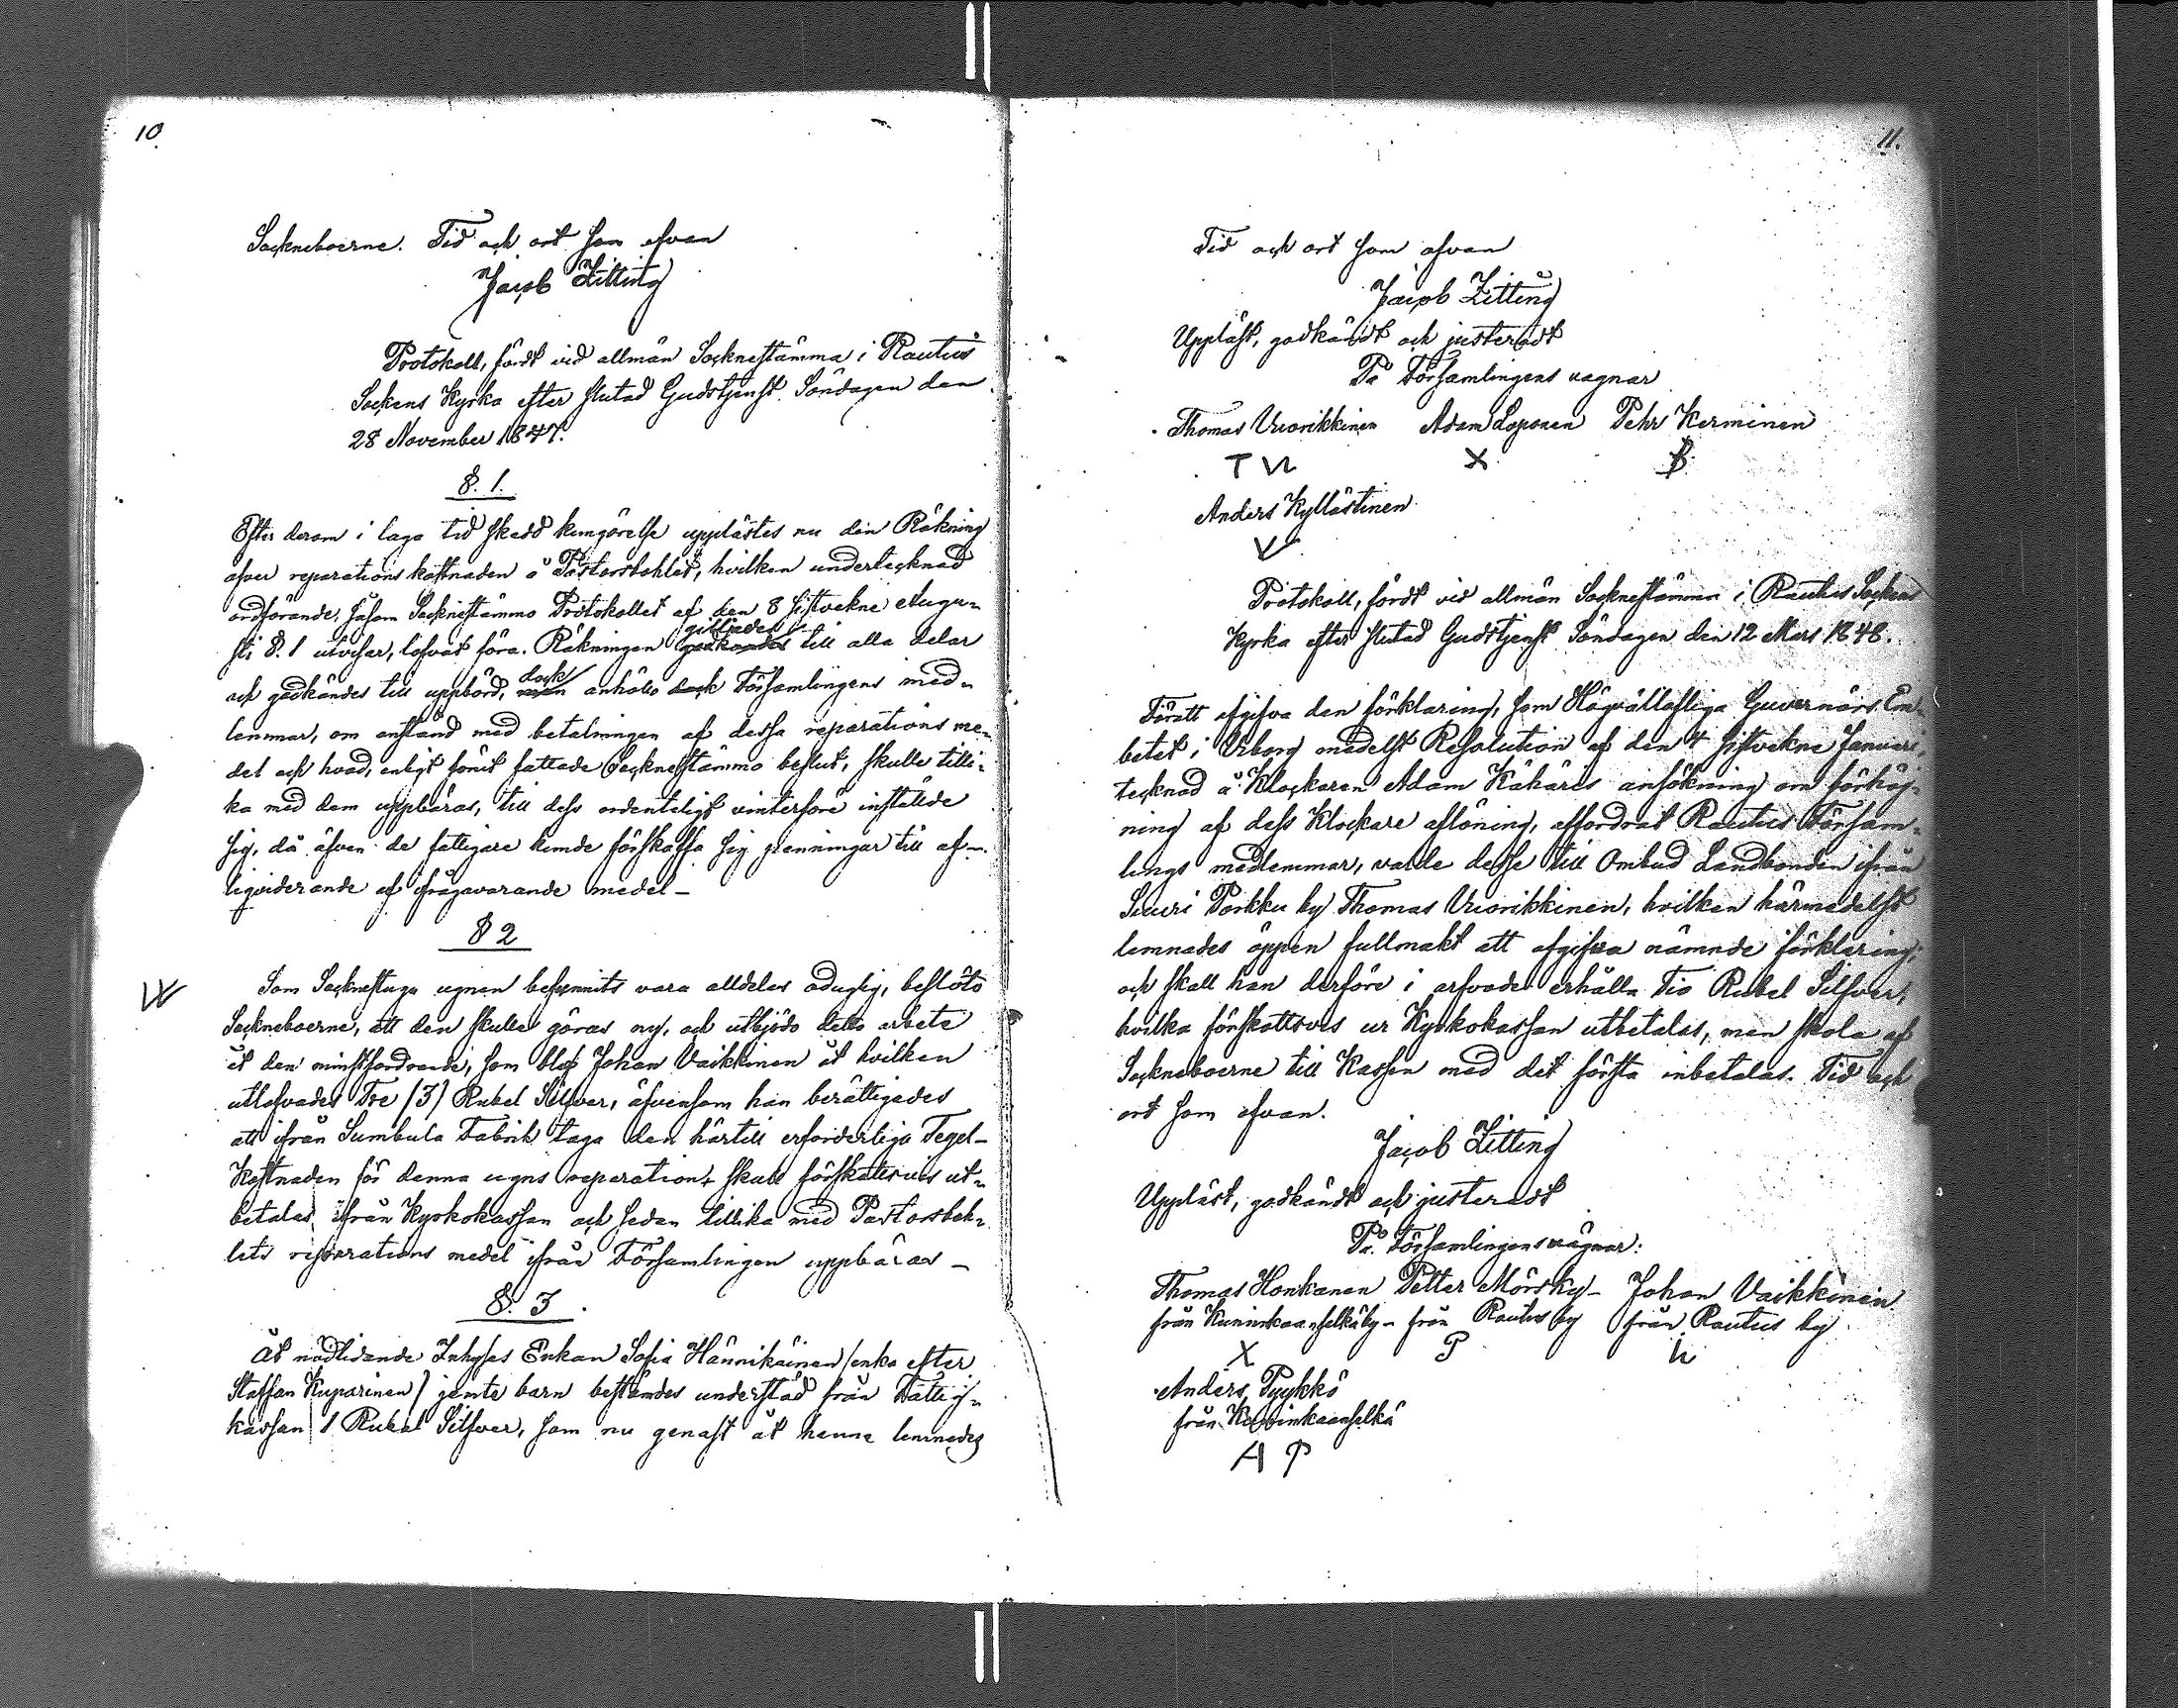 10.
Sockneboerne. Tid och ort som ofvan
Jacob Zitting
Protokoll, fördt vid allmän Sockne stämma i Rautus
Sockens Kyrka efter slutad Gudstjenst Söndagen den
28 November 1847.
§. 1.
Efter derom i laga tid skedd kungörelse upplästes nu den Räkning
öfver reparations kostnaden å Pastorsbohlet, hvilken undertecknad
ordförande, såsom Sockne stämmo Protokollet af den 8 sistvekne Augu-
sti §. 1 utvisar, lofvat föra. Räkningen godkändes gilljades till alla delar
och godkändes till uppbörd, men dock anhöllo dock Församlingens med-
lemmar, om anstånd med betalningen af dessa reparations me-
del och hvad, enligt förut fattade Sockne stämmo beslut, skulle tilli-
ka med dem uppbäras, till dess ordenteligt vinterföre inställde
sig, då äfven de fattigare kunde förskaffa sig penningar till af-
liqviderande af ifrågavarande medel -
§ 2
Som Sockne stuga ugnen befunnits vara alldeles oduglig, beslöto
Sockneboerne, att den skulle göras ny, och utbjöds detta arbete
åt den minstfordrande, som blef Johan Vaikkinen åt hvilken
utlofvades Tre (3) Rubel Silfver, äfvensom han berättigades
att ifrån Sumbula Fabrik taga den härtill erforderliga Tegel-
Kostnaden för denna ugns reparation, skall förskottsvis ut-
betalas ifrån Kyrkokassan och sedan tillika med Pastorsboh-
lets reparations medel ifrån Församlingen uppbäras -
§. 3
Åt nödlidande Inhyses Enkan Sofia Hännikäinen (enka efter
Staffan Kuparinen) jemte barn bestämdes understöd från Fattig-
kassan 1 Rubel Silfver, som nu genast åt henne lemnades
11.
Tid och ort som ofvan
Jacob Zitting
Uppläst, godkändt och justeradt
På Församlingens vägnar
Thomas Vuorikkinen Adam Loponen Pehr Kerminen
T W X P.
Anders Kyllästinen
Protokoll, fördt vid allmän Sockne stämma i Rautus Sockens
Kyrka efter slutad Gudstjenst Söndagen den 12 Mars 1848.
Föratt afgifva den förklaring, som Högvällofliga Guvernörs Em-
betet i Wiborg medelst Resolution af den 4 sistvekne Januari,
tecknad å Klockaren Adam Kähäris ansökning om förhöj-
ning af dess Klockare aflöning, affordrat Rautus Försam-
lings medlemmar, valde desse till Ombud Landbonden ifrån
Suuri Porkku by Thomas Vuorikkinen, hvilken härmedelst
lemnades öppen fullmakt att afgifva nämnde förklaring;
och skall han derföre i arfvode erhålla Tio Rubel Silfver,
hvilka förskottsvis ur Kyrkokassan utbetalas, men skola af
Sockneboerne till Kassan med det första inbetalas. Tid och
ort som ofvan.
Jacob Zitting
Uppläst, godkändt och justeradt
På Församlingens vägnar:
Thomas Honkanen Petter Mörsky - Johan Vaikkinen
från Kuninkaanselkä by - från Rautus by från Rautus by
X P W
Anders Pyykkö
från Kuninkaanselkä
A P